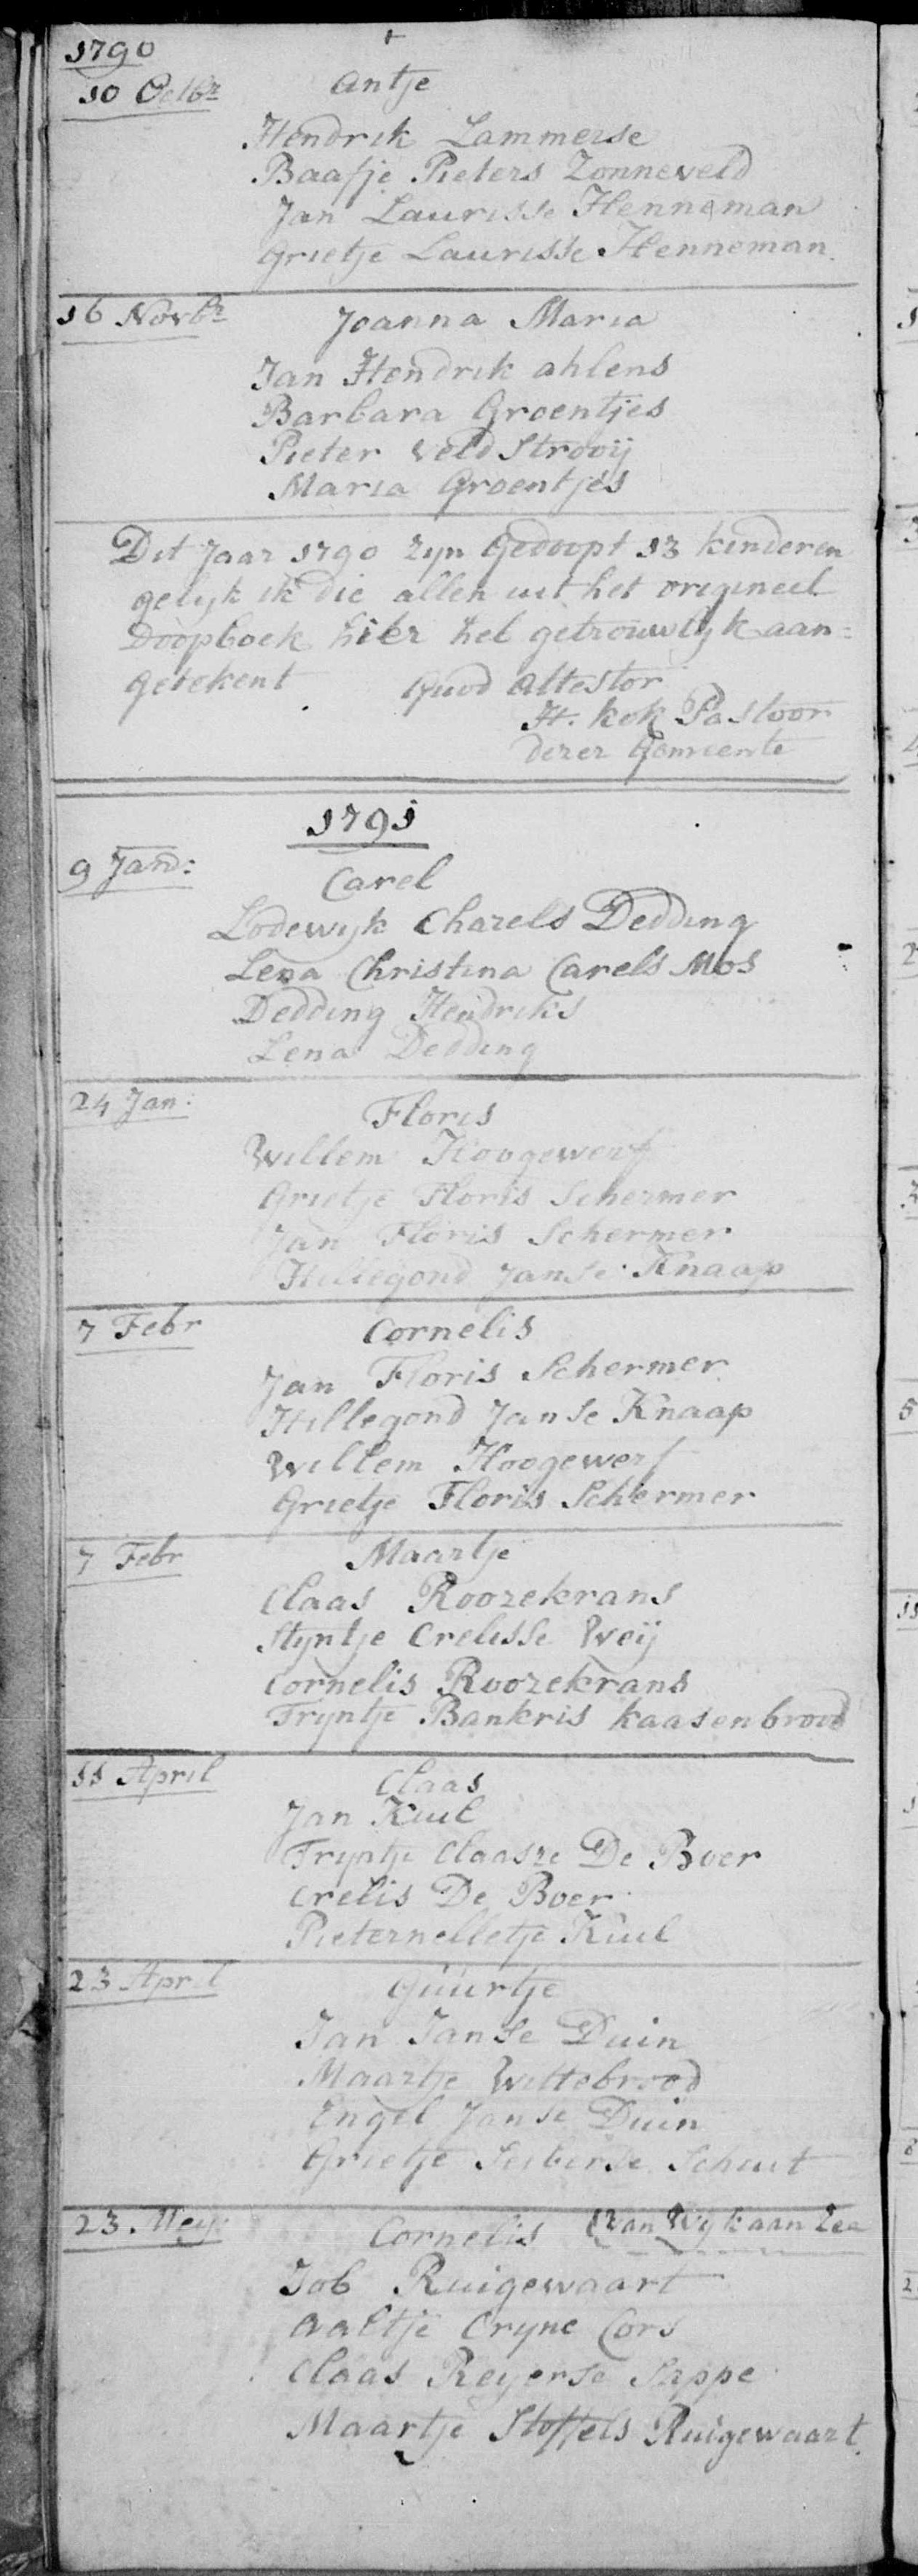 1790
10 Octbr
Antje
Hendrik Lammerse
Baafje Pieters Zonneveld
Jan Laurisse Henneman
Grietje Laurisse Henneman
16 Novbr
Joanna Maria
Jan Hendrik ahlens
Barbara Groentjes
Pieter Veld Strooij
Maria Groentjes
Dit Jaar 1790 zyn Gedoopt 13 kinderen
gelyk ik die allen uit het origineel
Doopboek hier heb getrouwlyk aan=
getekent Quod Attestor
H. Kok Pastoor
dezer Gemeente
1791
9 Jan:
Carel
Lodewyk Charels Dedding
Lena Christina Carels Mos
Dedding Hendriks
Lena Dedding
24 Jan:
Floris
Willem Hoogewerf
Grietje Floris Schermer
Jan Floris Schermer
Hillegond Janse Knaap
7 Febr
Cornelis
Jan Floris Schermer
Hillegond Janse Knaap
Willem Hoogewerf
Grietje Floris Schermer
7 Febr
Maartje
Claas Roozekrans
Styntje Crelisse Weij
Cornelis Roozekrans
Tryntje Bankris kaasenbrood
11 April
Claas
Jan Kuil
Tryntje Claasze De Boer
Crelis De Boer
Pieternelletje Kuil
23 April
Guurtje
Jan Janse Duin
Maartje Wittebrood
Engel Janse Duin
Grietje Schuit
23 Mey:
Cornelis (Van Wyk aan Zee
Job Ruigewaart
Aaltje Cryne Cors
Claas Reyerse Sappe
Maartje Stoffels Ruigewaart